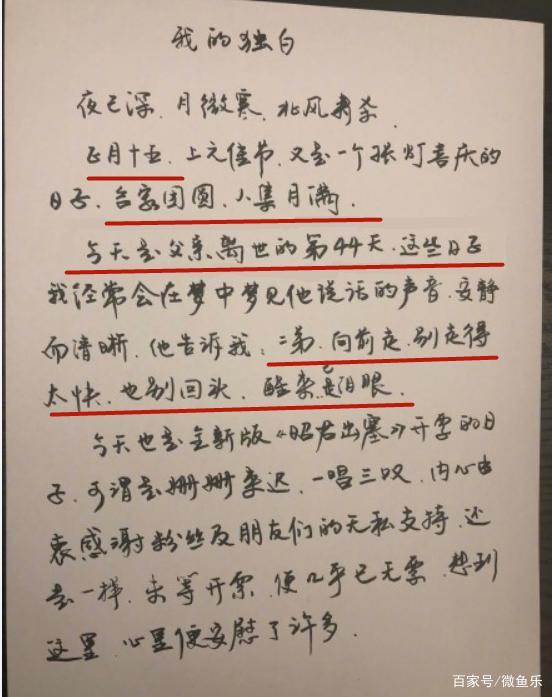 我的独白
夜已深，月微寒，北风肃杀，
正月十五，上元佳节，又是一个张灯喜庆的
日子，合家团圆，人集月满，
今天是父亲离世的第44天，这些日子
我经常会在梦中梦见他说话的声音，安静
而清晰，他告诉我：二弟，向前走，别走得
太快，也别回头，醒来已是泪眼，
今天也是全新版《昭君出塞》开票的日
子，可谓是姗姗来迟，一唱三叹，内心由
衷感谢粉丝及朋友们的无私支持，还
是一样，未等开票，便几乎已无票，想到
这里，心里便安慰了许多，
百家号/微鱼乐